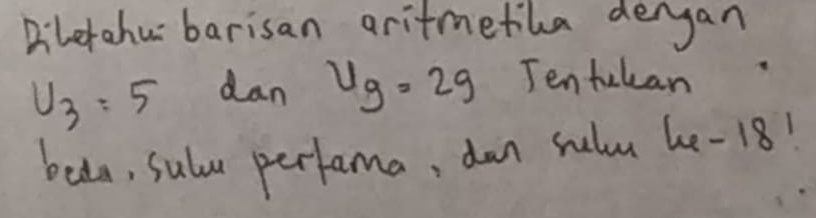 Diketahui barisan aritmetika dengan
U3 = 5 dan U9 = 29 Tentukan
beda, suku pertama, dan suku ke-18!